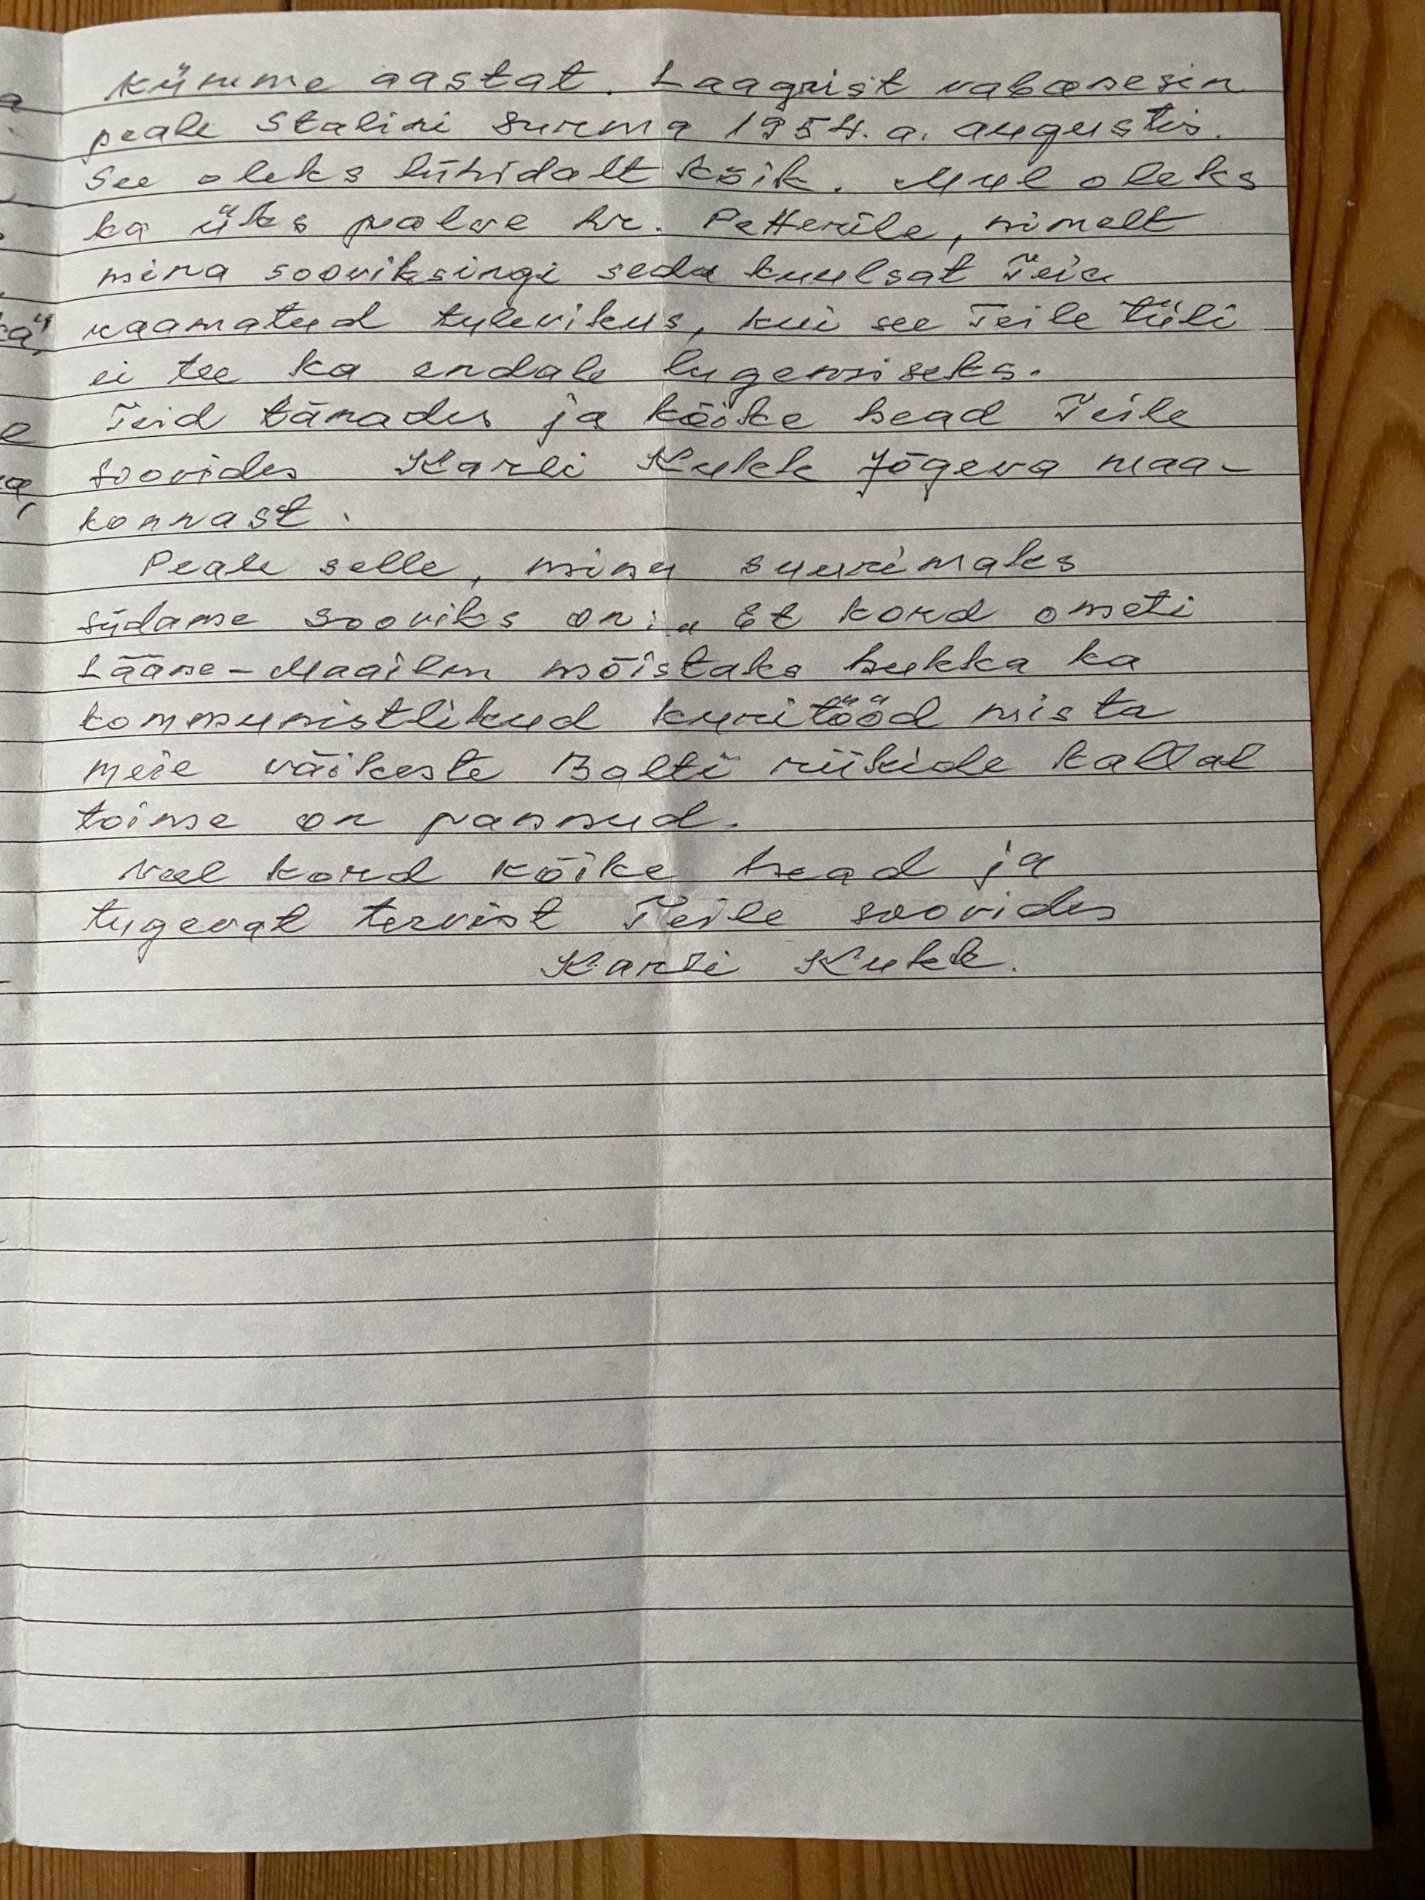 kümme aastat. Laagrist vabanesin
peale Stalini surma 1954. a. augustis.
See oleks lühidalt kõik. Mul oleks
ka üks palve hr. Petterile, nimelt
mina sooviksingi seda kuulsat Teie
raamatud tulevikus, kui see Teile tüli
ei tee ka endale lugemiseks.
Teid tänades ja kõike head Teile
soovides Karli Kukk Jõgeva maa-
konnast.
Peale selle, minu suurimaks
südame sooviks on: „Et kord ometi
Lääne-Maailm mõistaks hukka ka
kommunistlikud kuritööd mista
meie väikeste Balti riikide kallal
toime on pannud.
Veel kord kõike head ja
tugevat tervist Teile soovides
Karli Kukk.